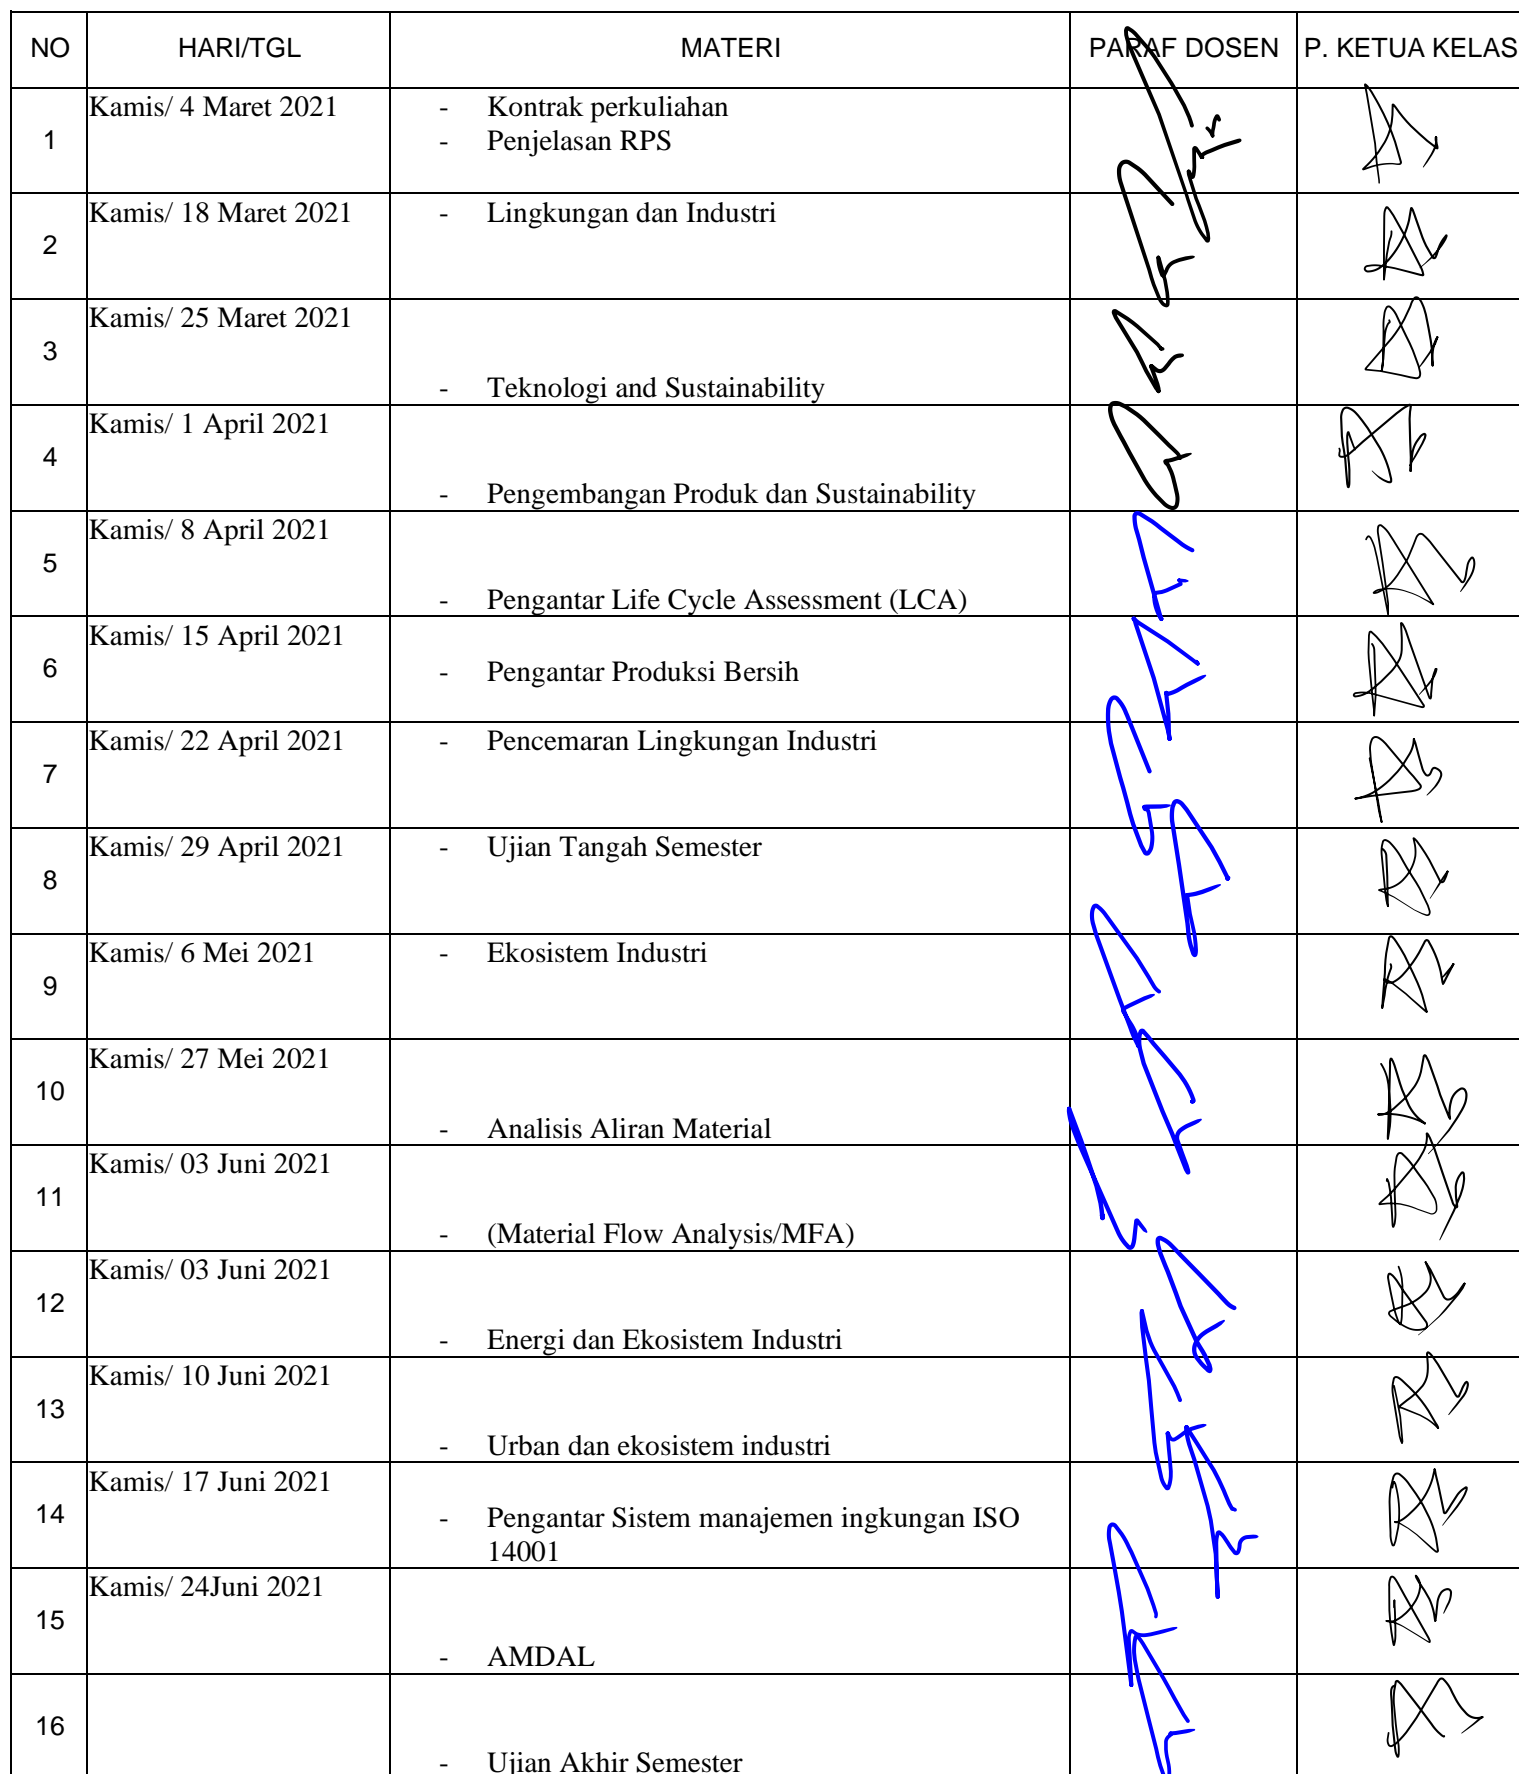 NO HARI/TGL MATERI PARAF DOSEN P. KETUA KELAS
1 Kamis/ 4 Maret 2021 - Kontrak perkuliahan
- Penjelasan RPS
2 Kamis/ 18 Maret 2021 - Lingkungan dan Industri
3 Kamis/ 25 Maret 2021
- Teknologi and Sustainability
4 Kamis/ 1 April 2021
- Pengembangan Produk dan Sustainability
5 Kamis/ 8 April 2021
- Pengantar Life Cycle Assessment (LCA)
6 Kamis/ 15 April 2021
- Pengantar Produksi Bersih
7 Kamis/ 22 April 2021 - Pencemaran Lingkungan Industri
8 Kamis/ 29 April 2021 - Ujian Tangah Semester
9 Kamis/ 6 Mei 2021 - Ekosistem Industri
10 Kamis/ 27 Mei 2021
- Analisis Aliran Material
11 Kamis/ 03 Juni 2021
- (Material Flow Analysis/MFA)
12 Kamis/ 03 Juni 2021
- Energi dan Ekosistem Industri
13 Kamis/ 10 Juni 2021
- Urban dan ekosistem industri
14 Kamis/ 17 Juni 2021
- Pengantar Sistem manajemen ingkungan ISO
14001
15 Kamis/ 24Juni 2021
- AMDAL
16
- Ujian Akhir Semester